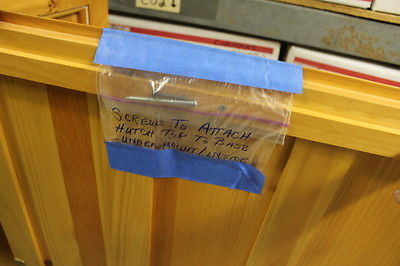 SCREWS TO ATTACH
HUTCH TOP TO BASE
- UNDER MOUNT/INSIDE